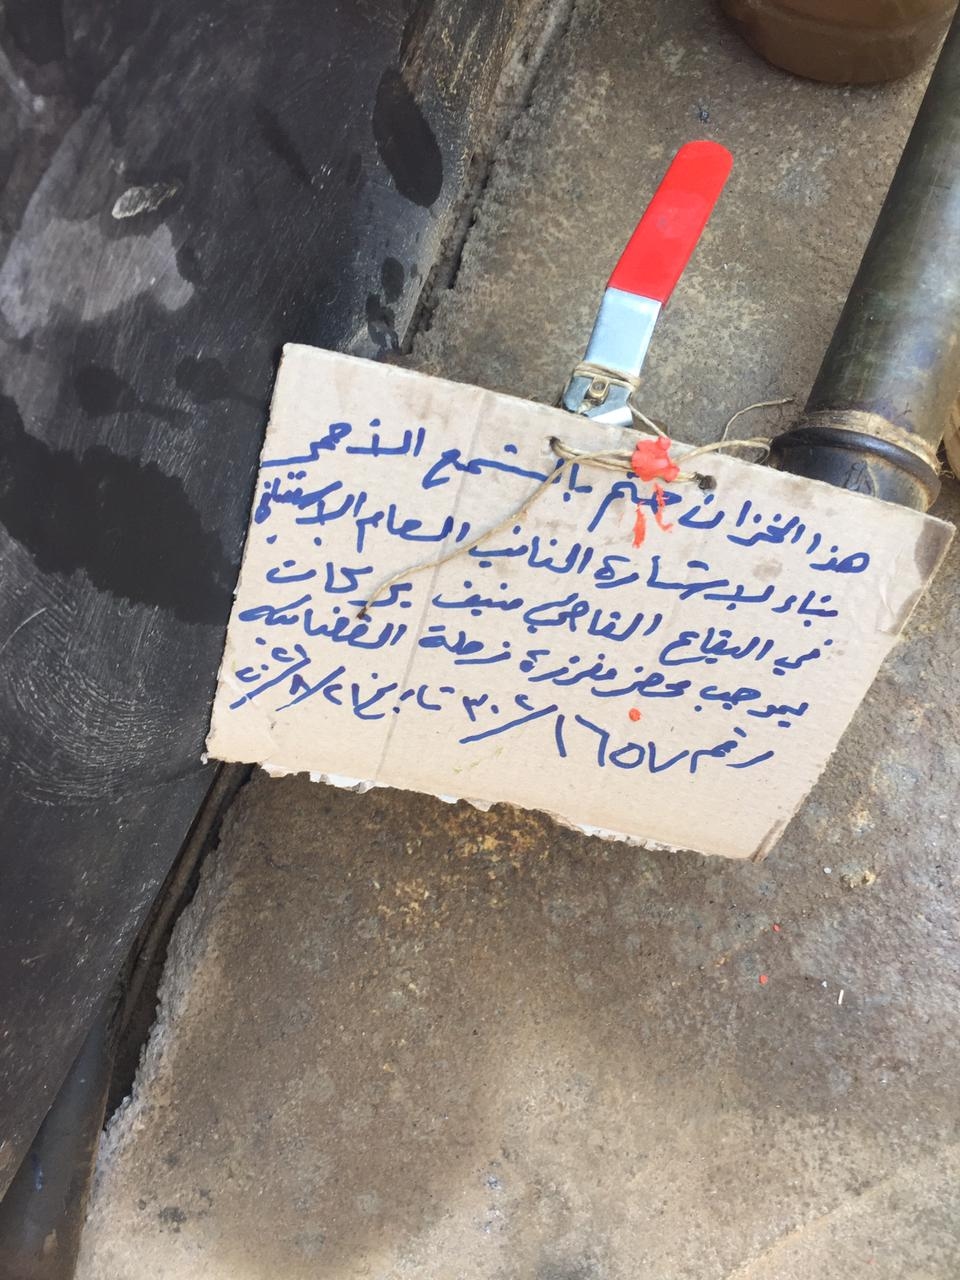 هذا الخزان ختم بالشمع الأحمر
بناء لإشارة النائب العام الاستئنافي
في البقاع القاضي منيف بركات
بموجب محضر مفرزة زحلة القضائية
رقم ١٦٥٧/٣٠٢ تاريخ